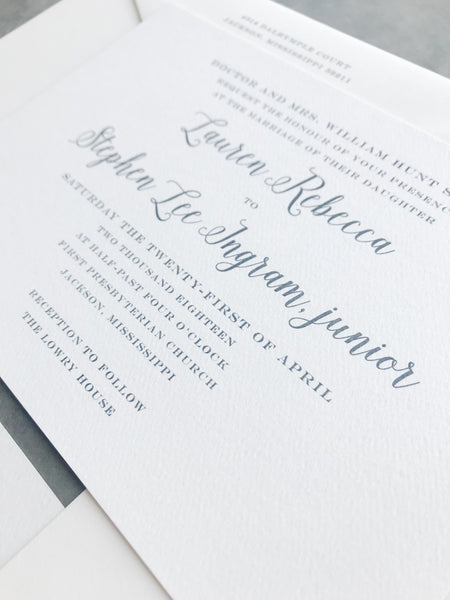 4914 DALRYMPLE COURT
JACKSON, MISSISSIPPI 39211
DOCTOR AND MRS. WILLIAM HUNT S
REQUEST THE HONOUR OF YOUR PRESENC
AT THE MARRIAGE OF THEIR DAUGHTER
Lauren Rebecca
TO
Stephen Lee Ingram, junior
SATURDAY THE TWENTY-FIRST OF APRIL
TWO THOUSAND EIGHTEEN
AT HALF-PAST FOUR O'CLOCK
FIRST PRESBYTERIAN CHURCH
JACKSON, MISSISSIPPI
RECEPTION TO FOLLOW
THE LOWRY HOUSE